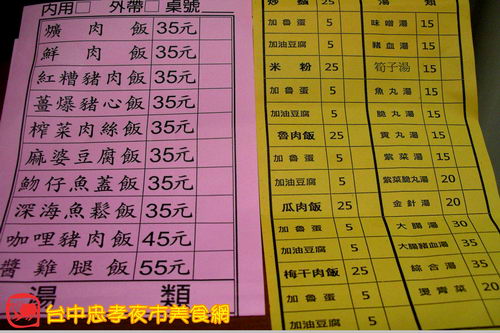 內用□ 外帶□ 桌號
爌肉飯 35元
鮮肉飯 35元
紅糟豬肉飯 35元
薑爆豬心飯 35元
榨菜肉絲飯 35元
麻婆豆腐飯 35元
魩仔魚蓋飯 35元
深海魚鬆飯 35元
咖哩豬肉飯 45元
醬雞腿飯 55元
湯類
炒麵 25 湯類
加魯蛋 5 味噌湯 15
加油豆腐 5 豬血湯 15
米粉 25 筍子湯 15
加魯蛋 5 魚丸湯 15
加油豆腐 5 脆丸湯 15
魯肉飯 25 貢丸湯 15
加魯蛋 5 紫菜湯 15
加油豆腐 5 紫菜脆丸湯 20
瓜肉飯 25 金針湯 20
加魯蛋 5 大腸湯 35
加油豆腐 5 大腸豬血湯 35
梅干肉飯 25 綜合湯 35
加魯蛋 5 燙青菜 20
加油豆腐 5
台中忠孝夜市美食網